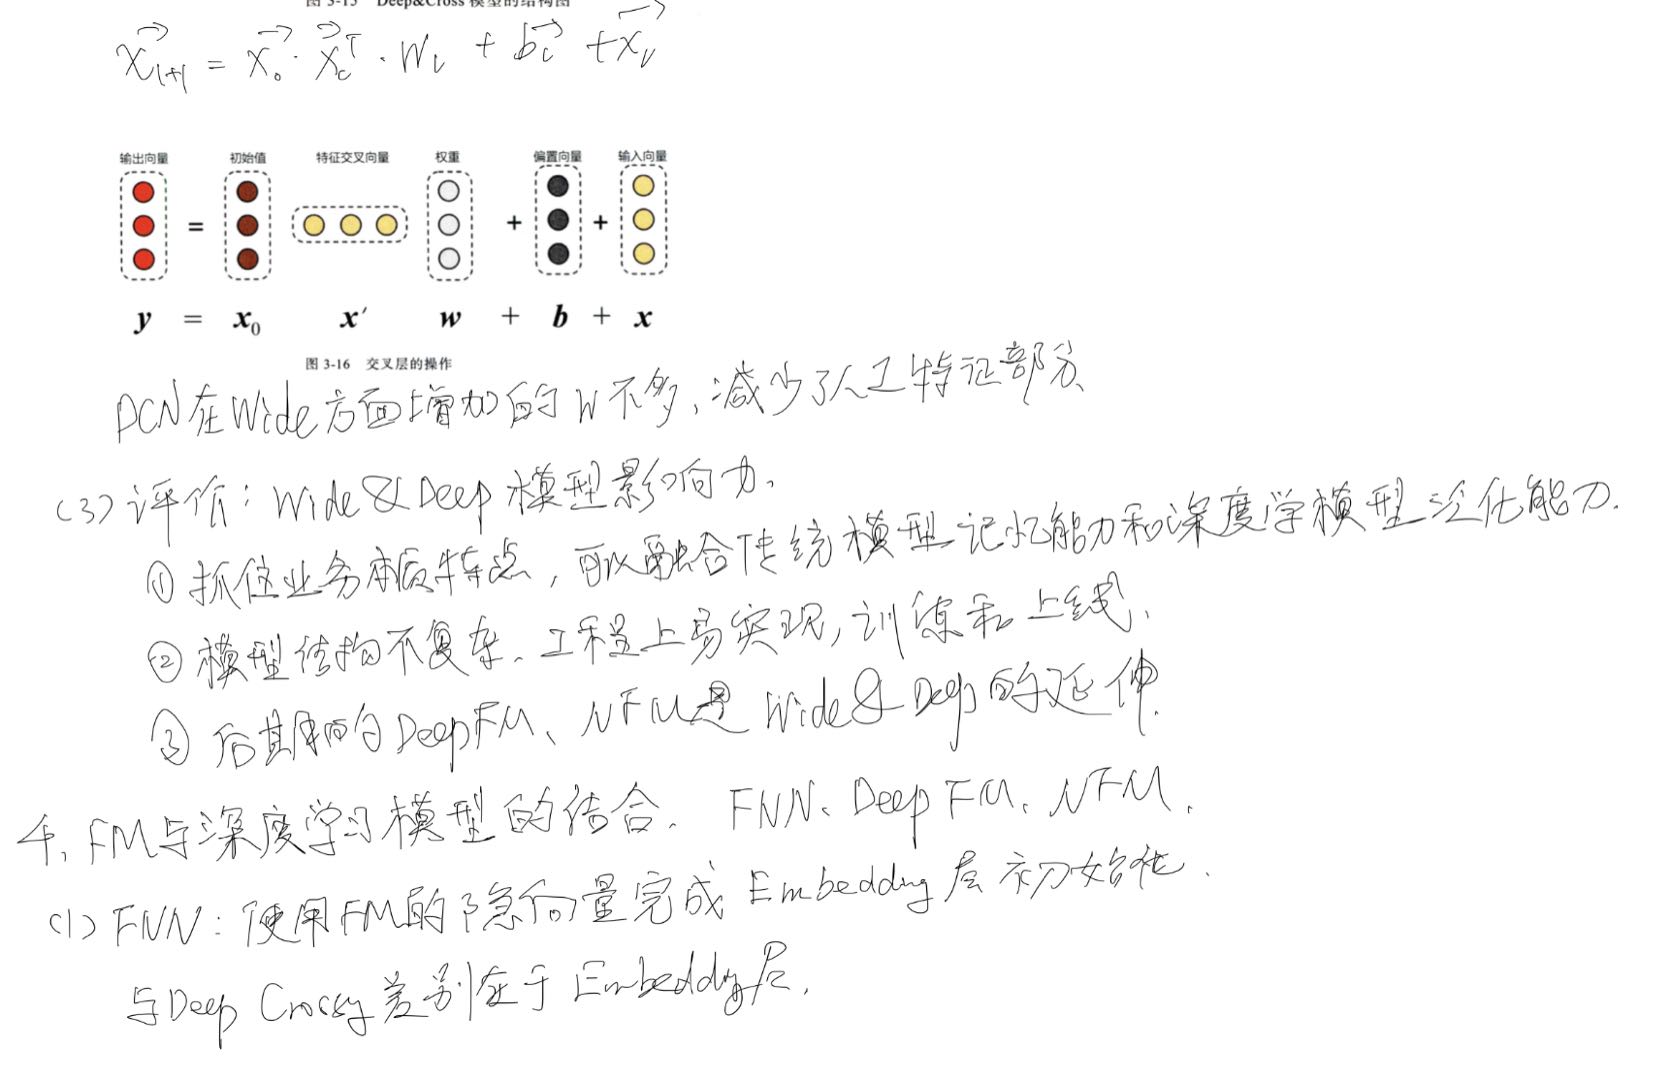 图 3-15 Deep&Cross 模型的结构图
x_{l+1} = x_0 · x_c^T · W_l + b_c + x_l
输出向量 初始值 特征交叉向量 权重 偏置向量 输入向量
= + +
y = x_0 x′ w + b + x
图 3-16 交叉层的操作
DCN在Wide方面增加的W不多,减少了人工特征部分、
(3) 评价: Wide&Deep 模型影响力.
① 抓住业务本质特点, 可以融合传统模型记忆能力和深度学模型泛化能力.
② 模型结构不复杂、工程上易实现, 训练和上线.
③ 后期的DeepFM、NFM是 Wide&Deep的延伸.
4. FM与深度学习模型的结合. FNN、DeepFM、NFM.
(1) FNN: 使用FM的隐向量完成 Embedding层初始化.
与Deep Crossing差别在于 Embedding层.